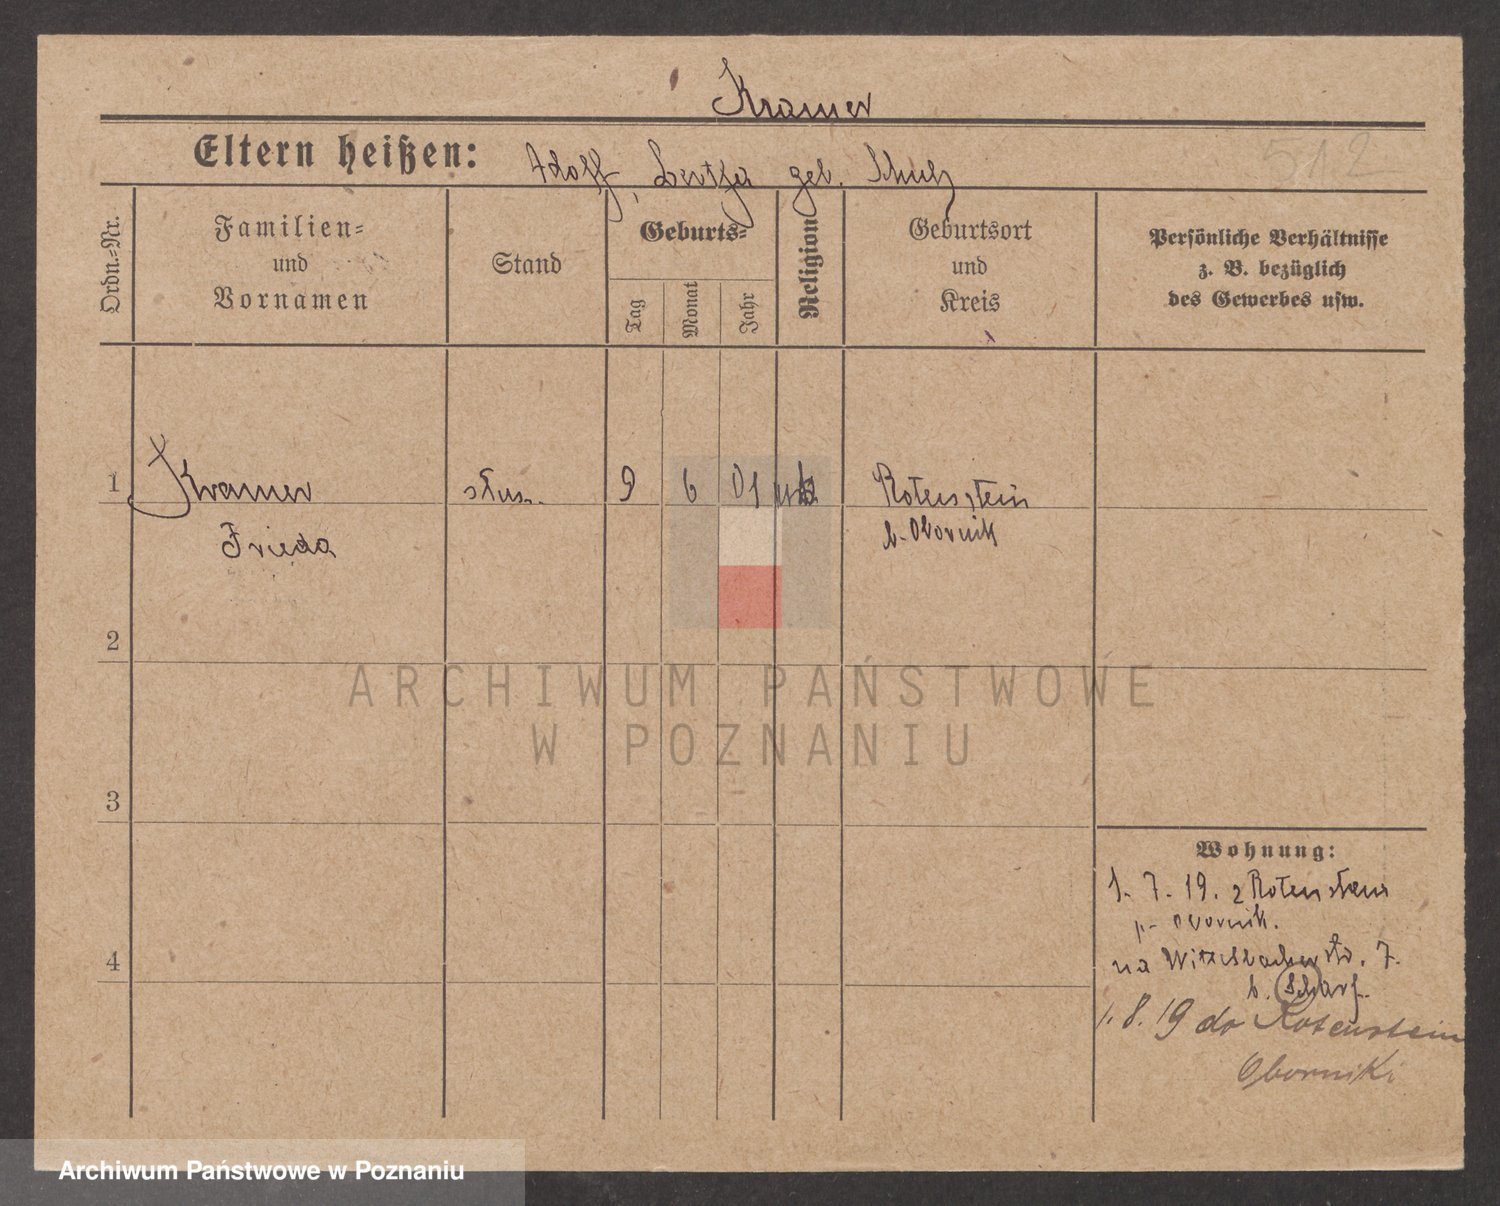 Kramer
Eltern heißen: Adolf, Bertha geb. Schulz
512
Ordn.-Nr.
Familien-
und
Vornamen
Stand
Geburts-
Tag
Monat
Jahr
Religion
Geburtsort
und
Kreis
Persönliche Verhältnisse
z. B. bezüglich
des Gewerbes usw.
1 Kramer 9 6 01 Rotenstein
Frieda b. Obornik
2
3
4
Wohnung:
1. 7. 19. z Rotenstein
p. Obornik.
na Wittelsbacherstr. 7.
b. Scharf.
1. 8. 19 do Rotenstein
Oborniki
ARCHIWUM PAŃSTWOWE
W POZNANIU
Archiwum Państwowe w Poznaniu